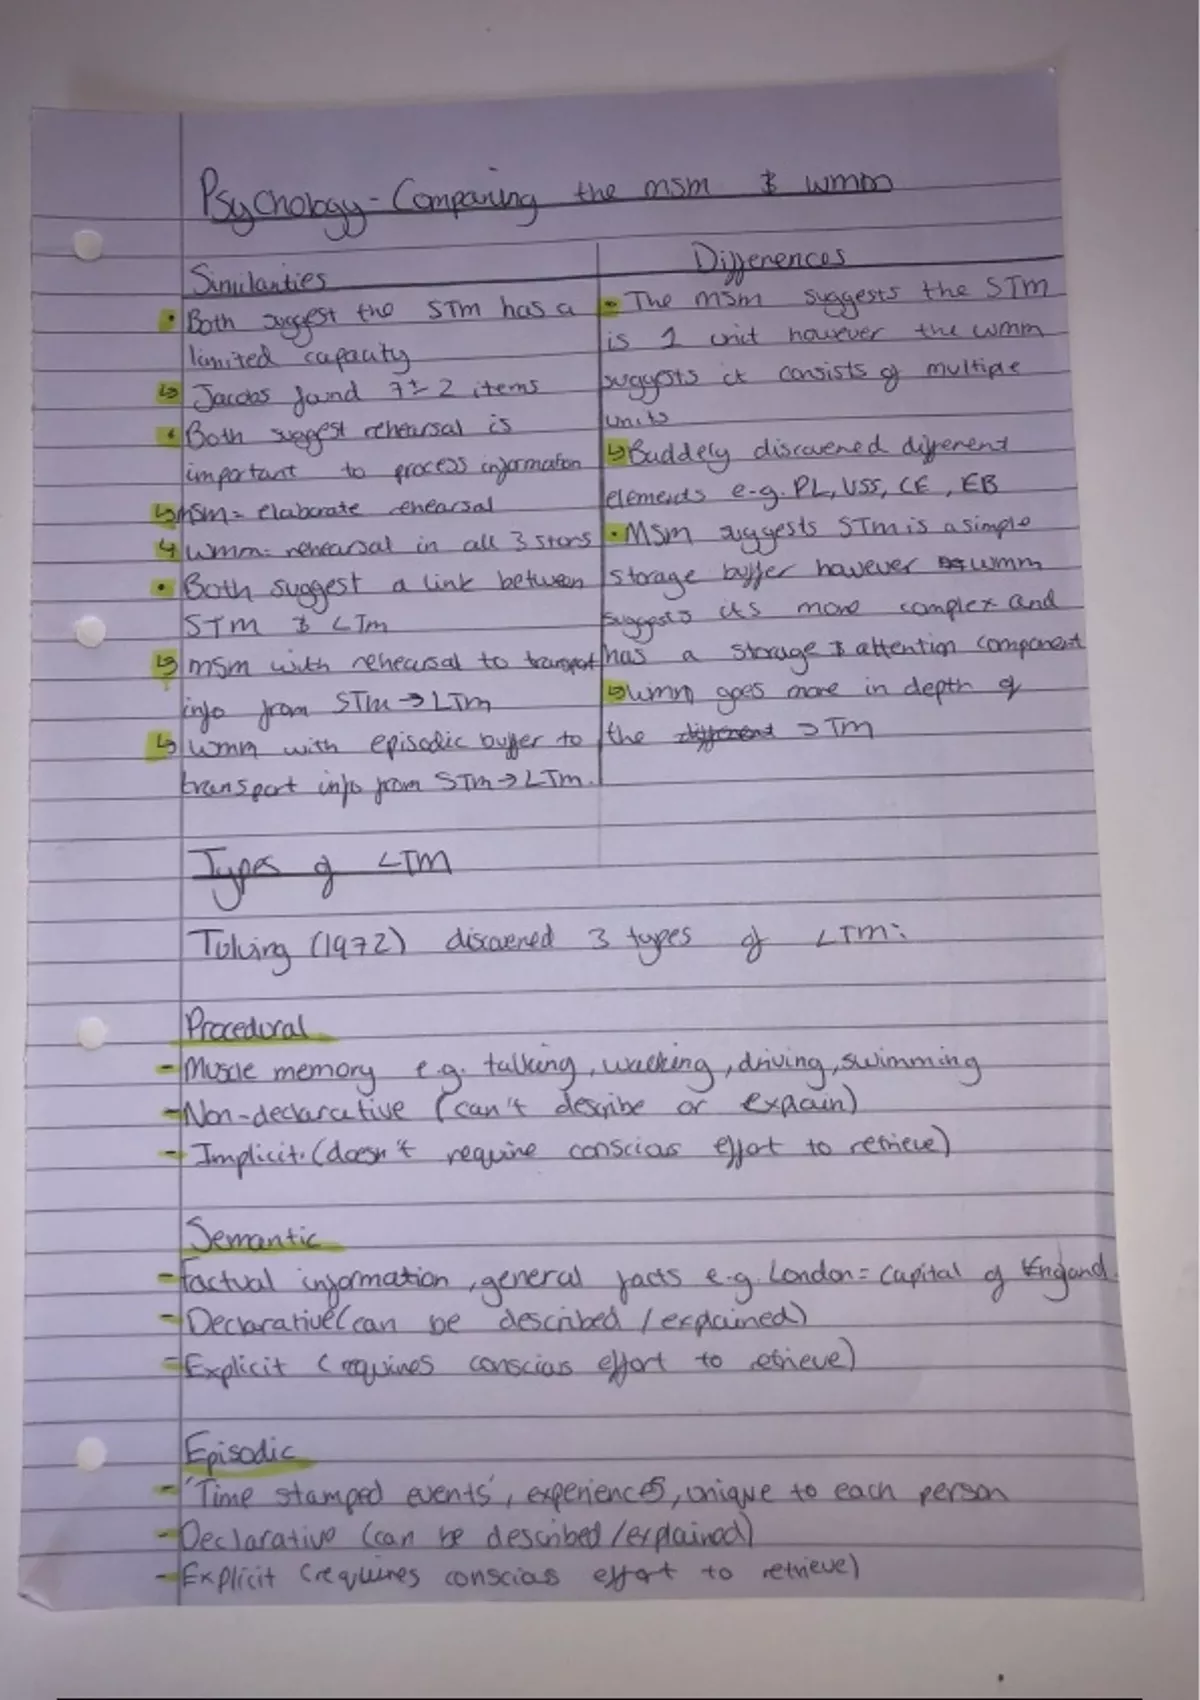 Psychology - Comparing the msm & wmm
Similarities
• Both suggest the STM has a
limited capacity
↳ Jacobs found 7± 2 items
• Both suggest rehearsal is
important to process information
↳ MSM = elaborate rehearsal
↳ WMM: rehearsal in all 3 stors
• Both suggest a link between
STM & LTM
↳ MSM with rehearsal to transport
info from STM → LTM
↳ WMM with episodic buffer to
transport info from STM → LTM.
Differences
• The MSM suggests the STM
is 1 unit however the WMM
suggests it consists of multiple
units
↳ Baddely discovered different
elements e-g. PL, VSS, CE, EB
• MSM suggests STM is a simple
storage buffer however WMM
suggests its more complex and
has a storage & attention component
↳ WMM goes more in depth of
the different STM
Types of LTM
Tulving (1972) discovered 3 types of LTM:
Procedural
- Muscle memory e.g. talking, walking, driving, swimming
- Non-declarative (can't describe or explain)
- Implicit. (doesn't require conscious effort to retrieve)
Semantic
- Factual information, general facts e-g. London = Capital of England.
- Declarative (can be described / explained)
- Explicit (requires conscious effort to retrieve)
Episodic
- 'Time stamped events', experiences, unique to each person
- Declarative (can be described / explained)
- Explicit (requires conscious effort to retrieve)